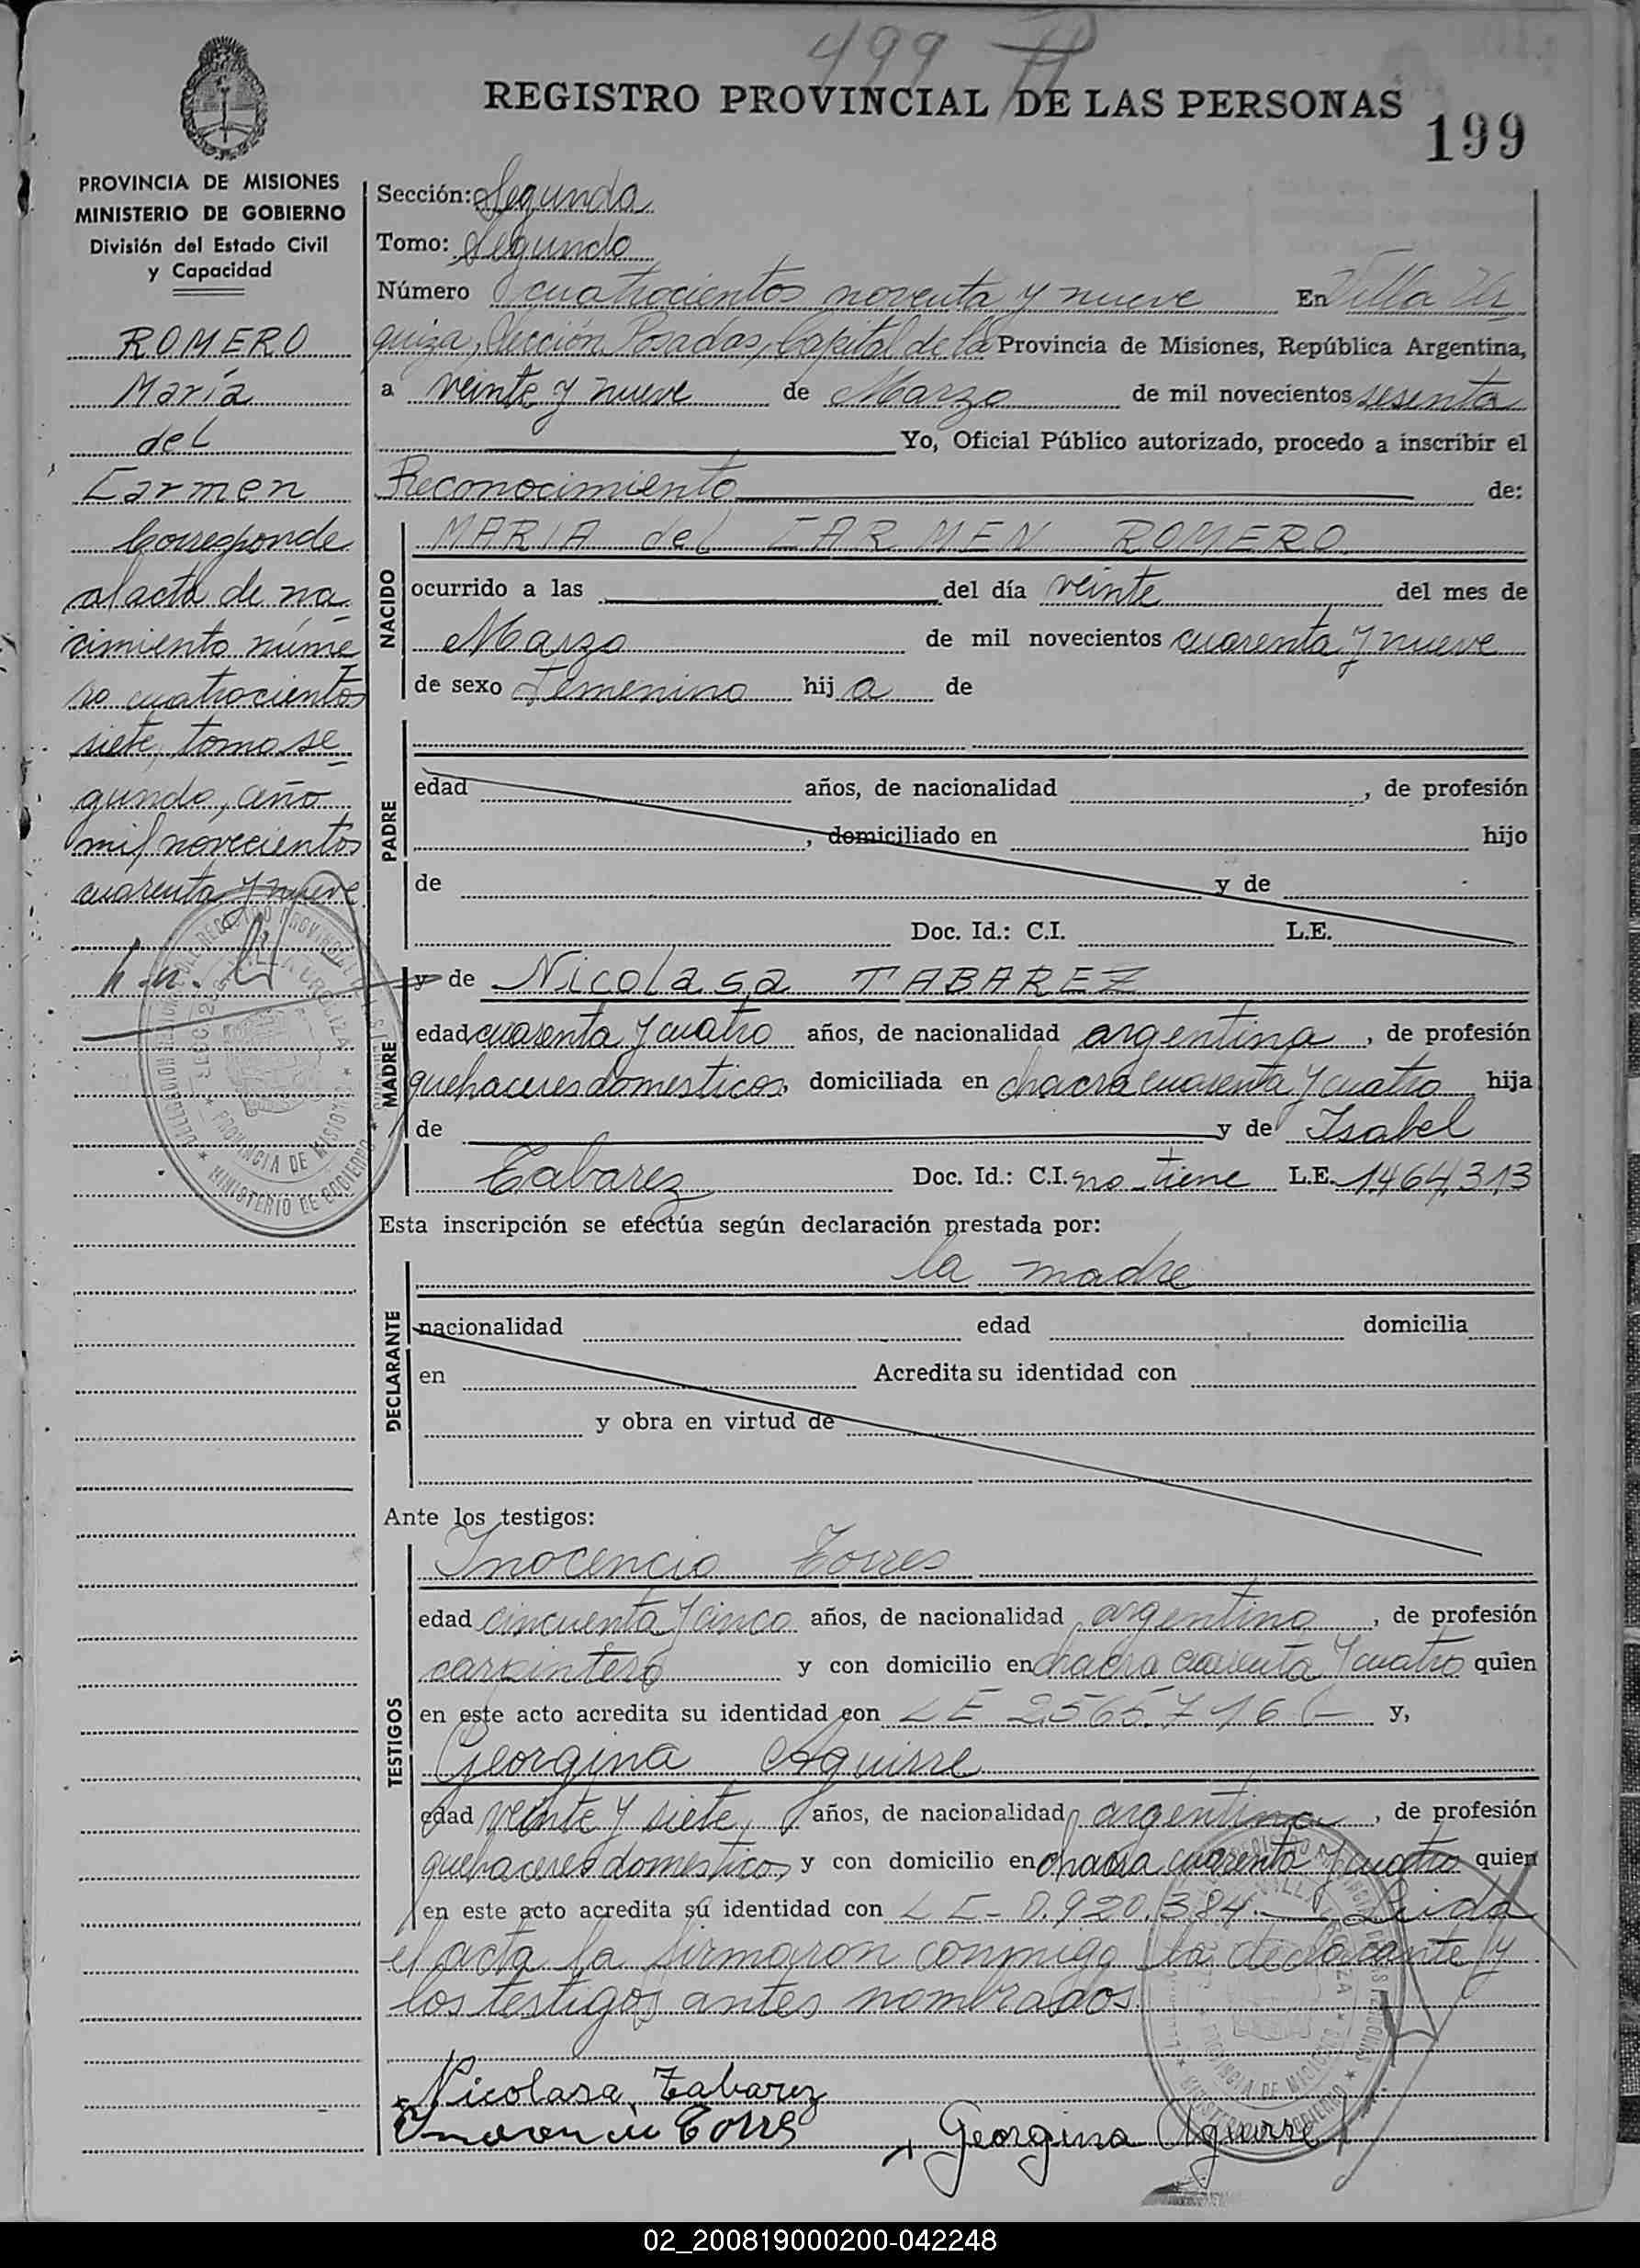 499 II
REGISTRO PROVINCIAL DE LAS PERSONAS
199
PROVINCIA DE MISIONES
MINISTERIO DE GOBIERNO
División del Estado Civil
y Capacidad
ROMERO
María
del
Carmen
Corresponde
al acta de na
cimiento núme
ro cuatrocientos
siete, tomo se
gundo, año
mil novecientos
cuarenta y nueve
Sección: Segunda
Tomo: Segundo
Número cuatrocientos noventa y nueve En Villa Ur
quiza, Sección Posadas, Capital de la Provincia de Misiones, República Argentina,
a veinte y nueve de Marzo de mil novecientos sesenta
Yo, Oficial Público autorizado, procedo a inscribir el
Reconocimiento de:
NACIDO
MARIA del CARMEN ROMERO
ocurrido a las del día veinte del mes de
Marzo de mil novecientos cuarenta y nueve
de sexo Femenino hija de
PADRE
edad años, de nacionalidad , de profesión
, domiciliado en hijo
de y de
Doc. Id.: C.I. L.E.
MADRE
y de Nicolasa TABAREZ
edad cuarenta y cuatro años, de nacionalidad argentina, de profesión
quehaceres domesticos, domiciliada en chacra cuarenta y cuatro hija
de y de Isabel
Tabarez Doc. Id.: C.I. no tiene L.E. 1.464.313
Esta inscripción se efectúa según declaración prestada por:
DECLARANTE
la madre
nacionalidad edad domicilia
en Acredita su identidad con
y obra en virtud de
Ante los testigos:
TESTIGOS
Inocencio Torres
edad cincuenta y cinco años, de nacionalidad argentino, de profesión
carpintero y con domicilio en chacra cuarenta y cuatro quien
en este acto acredita su identidad con LE 2.565.716 y,
Georgina Aguirre
edad veinte y siete, años, de nacionalidad argentina, de profesión
quehaceres domesticos y con domicilio en chacra cuarenta y cuatro quien
en este acto acredita su identidad con LE- 0.920.384.- Leida
el acta la firmaron conmigo la declarante y
los testigos antes nombrados.
Nicolasa Tabarez
Torres
Georgina Aguirre
02_200819000200-042248